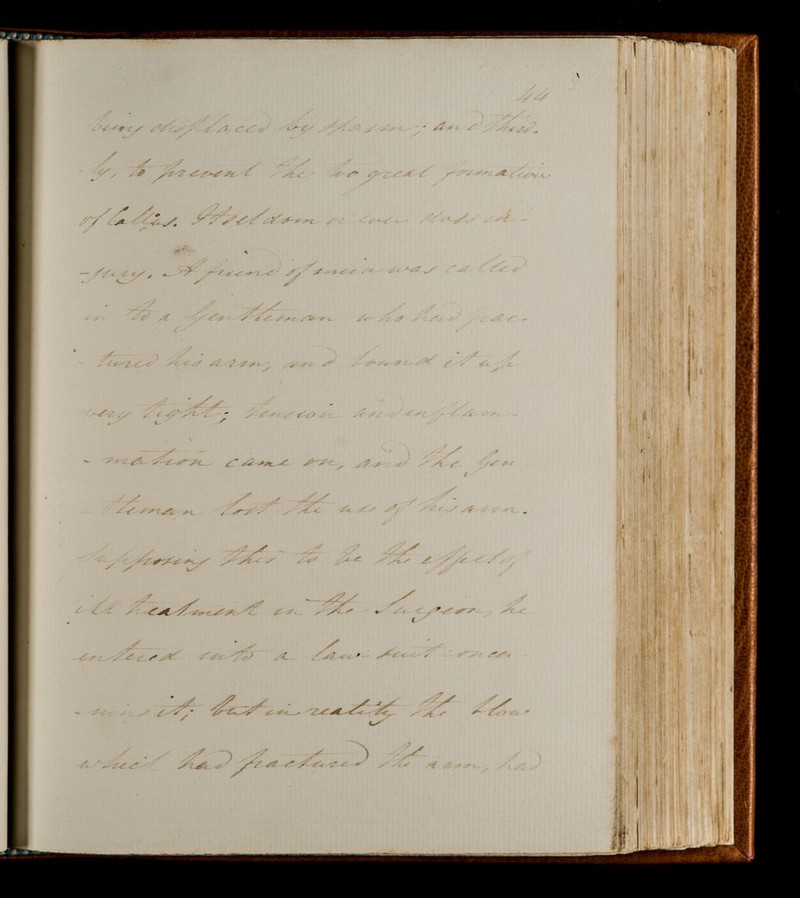 44
being displaced by spasm; and Third-
-ly, to prevent the too great formation
of Callus. It seldom or ever does in-
-jury. A friend of mine was called
in to a Gentleman who had frac-
-tured his arm, and bound it up
very tight; tension and inflam-
-mation came on, and the Gen-
-tleman lost the use of his arm.
Supposing this to be the effect of
ill treatment in the Surgeon, he
entered into a law suit concer-
-ning it; but in reality the blow
which had fractured the arm, had